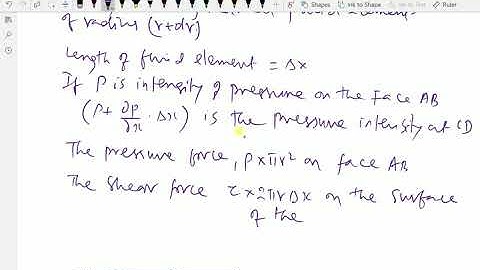 Shapes
Ink to Shape
Ink to Math
Ruler
of radius (r+dr)
Length of fluid element = Δx
If P is intensity of pressure on the face AB
(P+ ∂P/∂x . Δx) is the pressure intensity at CD
The pressure force, P×πr² on face AB
The shear force τ×2πrΔx on the surface
of the